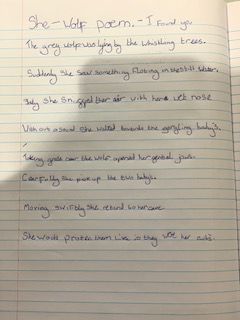 She-Wolf poem. - I found you
The grey wolf was lying by the whistling trees.
Suddenly she saw something floting in the still water.
Shly she snuffed ther air with here wet nose
With out a sound she walked towards the gurgling baby's.
Teeng gods over the wolf opened her gental jaws.
Cearfully she pick up the two baby's.
Moving swiftly she retund to her cave
She would protect them live is they were her cubs.